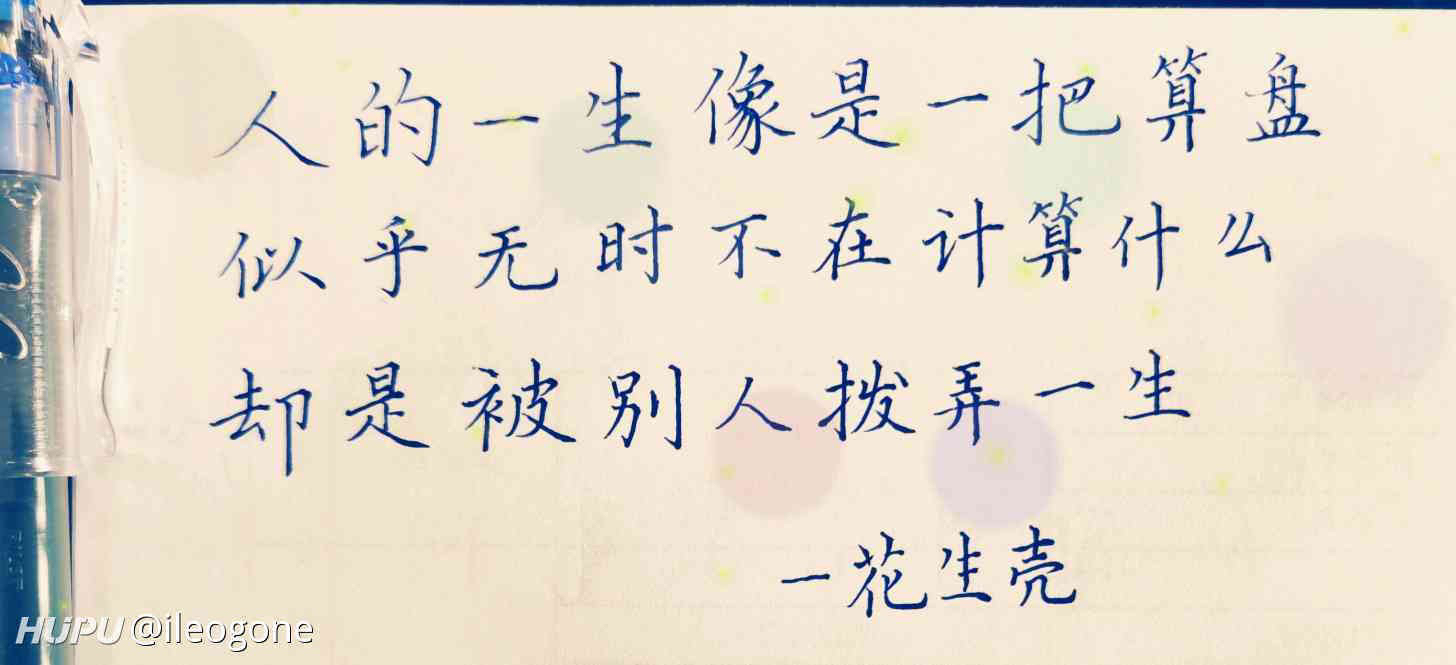 人的一生像是一把算盘
似乎无时不在计算什么
却是被别人拨弄一生
一花生壳
HUPU @ileogone